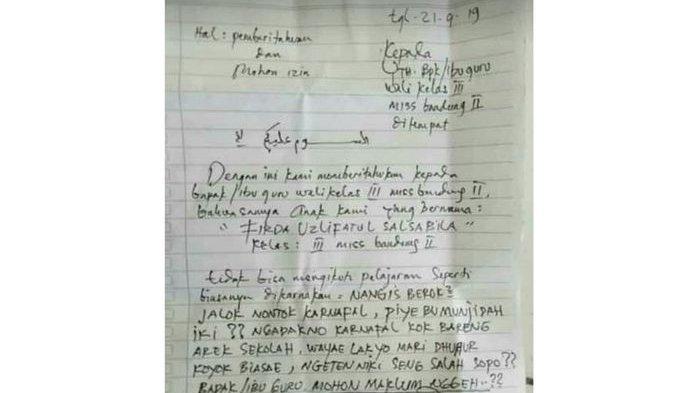 tgl. 21-9-19
Hal: pemberitahuan
dan
Mohon izin
Kepada
YTH. Bpk/ibu guru
wali kelas III
MISS bandung II
ditempat
السلام عليكم
Dengan ini kami memberitahukan kepada
bapak/ibu guru wali kelas III miss bandung II,
bahwasannya anak kami yang bernama:
" FIRDA UZLIFATUL SALSABILA "
KELAS: III miss bandung II
tidak bisa mengikuti pelajaran seperti
biasanya dikarnakan = NANGIS BEROK2
JALOK NONTOK KARNAFAL, PIYE BU MUNJIDAH
IKI ?? NGADAKNO KARNAFAL KOK BARENG
AREK SEKOLAH, WAYAE LAK YO MARI DHUHUR
KOYOK BIASAE, NGETEN NIKI SENG SALAH SOPO ??
BAPAK/IBU GURU MOHON MAKLUM NGGEH..??